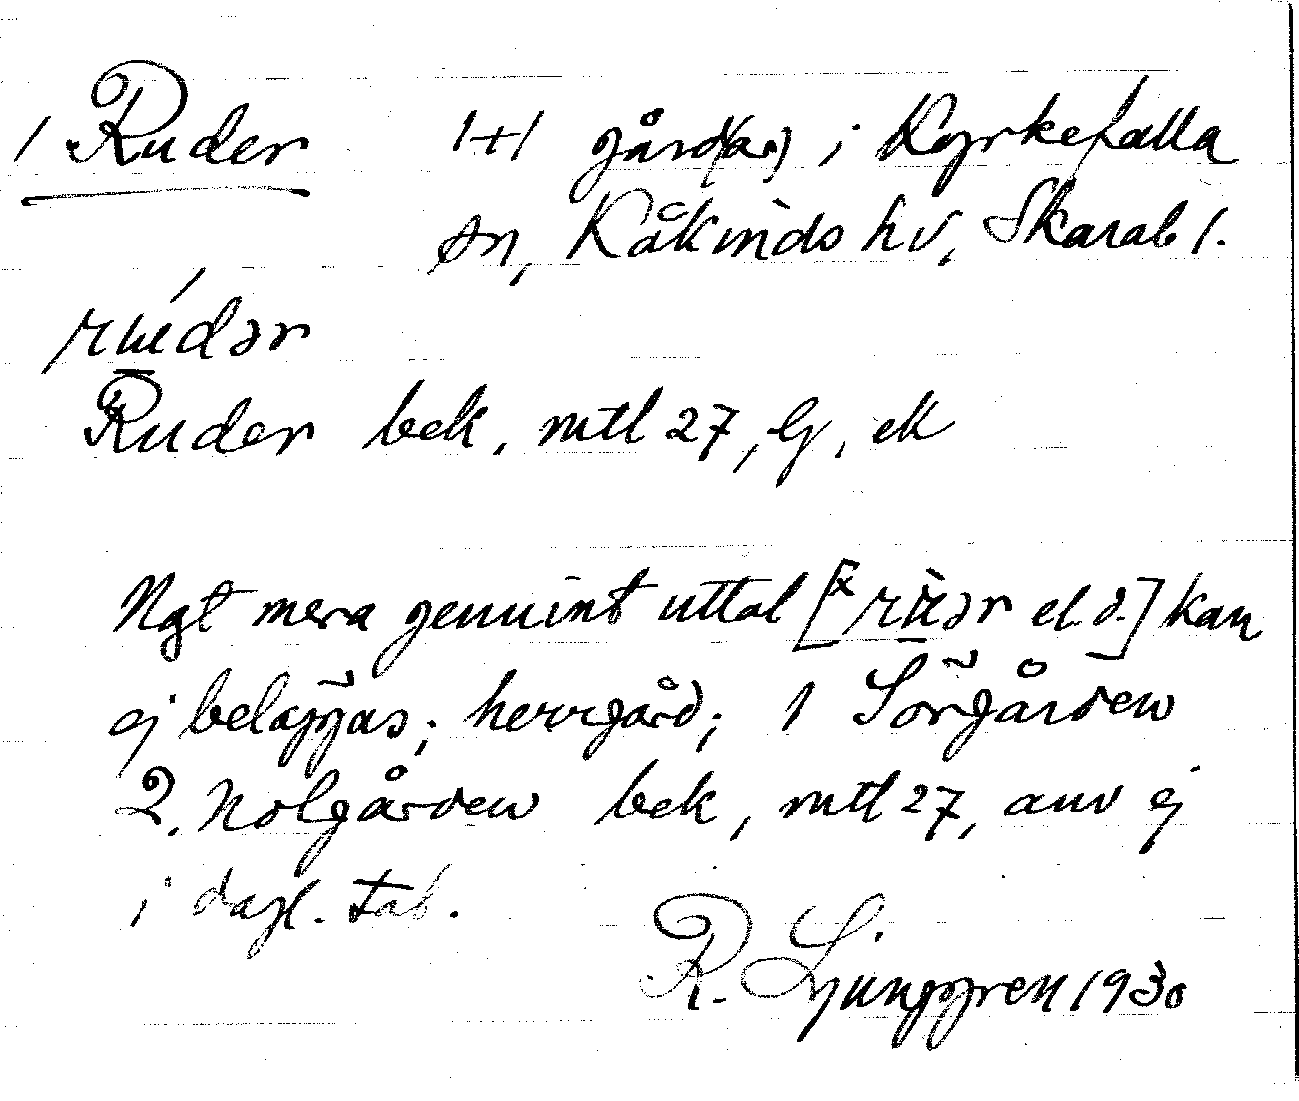 1 Ruder 1+1 gård(ar) i Kyrkefalla
sn, Kåkinds hd, Skarab l.
rúdər
Ruder bek. mtl 27, Gj, ek
Ngt mera genuint uttal [x rùər el. d.] kan
ej beläggas; herrgård; 1 Sörgården
2. Nolgården bek, mtl 27, anv ej
i dagl. tal.
R. Ljunggren 1930